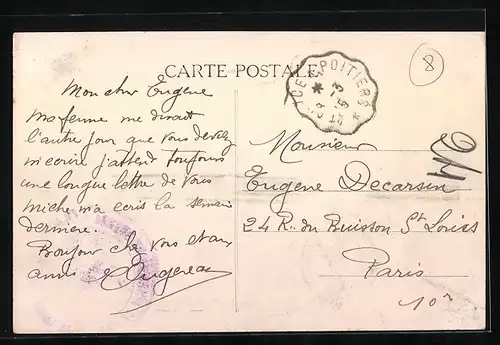 CARTE POSTALE
Mon cher Eugene
ma femme me disait
l'autre jour que vous devez
m'ecrire j'attend toujours
une longue lettre de vous
miche m'a ecris la semain
derniere.
Bonjour chez vous et aux
amis Augereau
POITIERS
8
Monsieur
Eugene Decarsin
24 R. du Buisson St Louis
Paris
10e